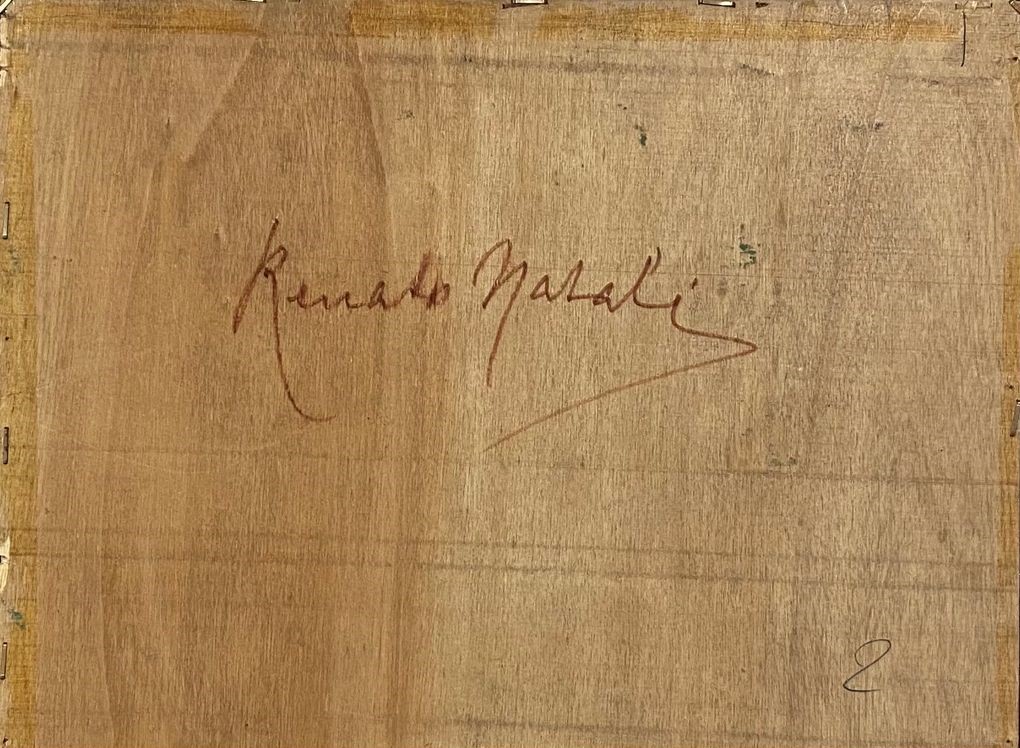 Renato Natali
2